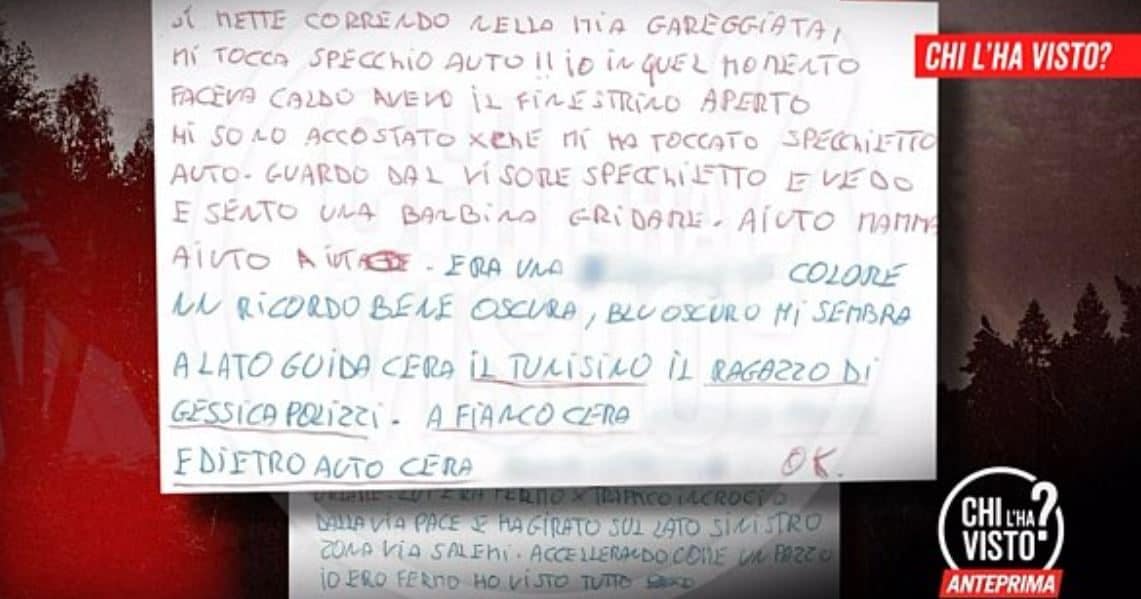 SI METTE CORRENDO NELLA MIA GAREGGIATA,
MI TOCCA SPECCHIO AUTO !! IO IN QUEL MOMENTO
FACEVA CALDO AVEVO IL FINESTRINO APERTO
MI SONO ACCOSTATO XCHE MI HA TOCCATO SPECCHIETTO
AUTO. GUARDO DAL VISORE SPECCHIETTO E VEDO
E SENTO UNA BAMBINA GRIDARE. AIUTO MAMMA
AIUTO . ERA UNA COLORE
NN RICORDO BENE OSCURA, BLU OSCURO MI SEMBRA
A LATO GUIDA CERA IL TUNISINO IL RAGAZZO DI
GESSICA POLIZZI. A FIANCO CERA
E DIETRO AUTO CERA OK.
ERA FERMO X TRAFFICO INCROCIO
DALLA VIA PACE E HA GIRATO SUL LATO SINISTRO
ZONA VIA SALEMI. ACCELLERANDO COME UN PAZZO
IO ERO FERMO HO VISTO TUTTO
CHI L'HA VISTO?
CHI L'HA
VISTO?
ANTEPRIMA